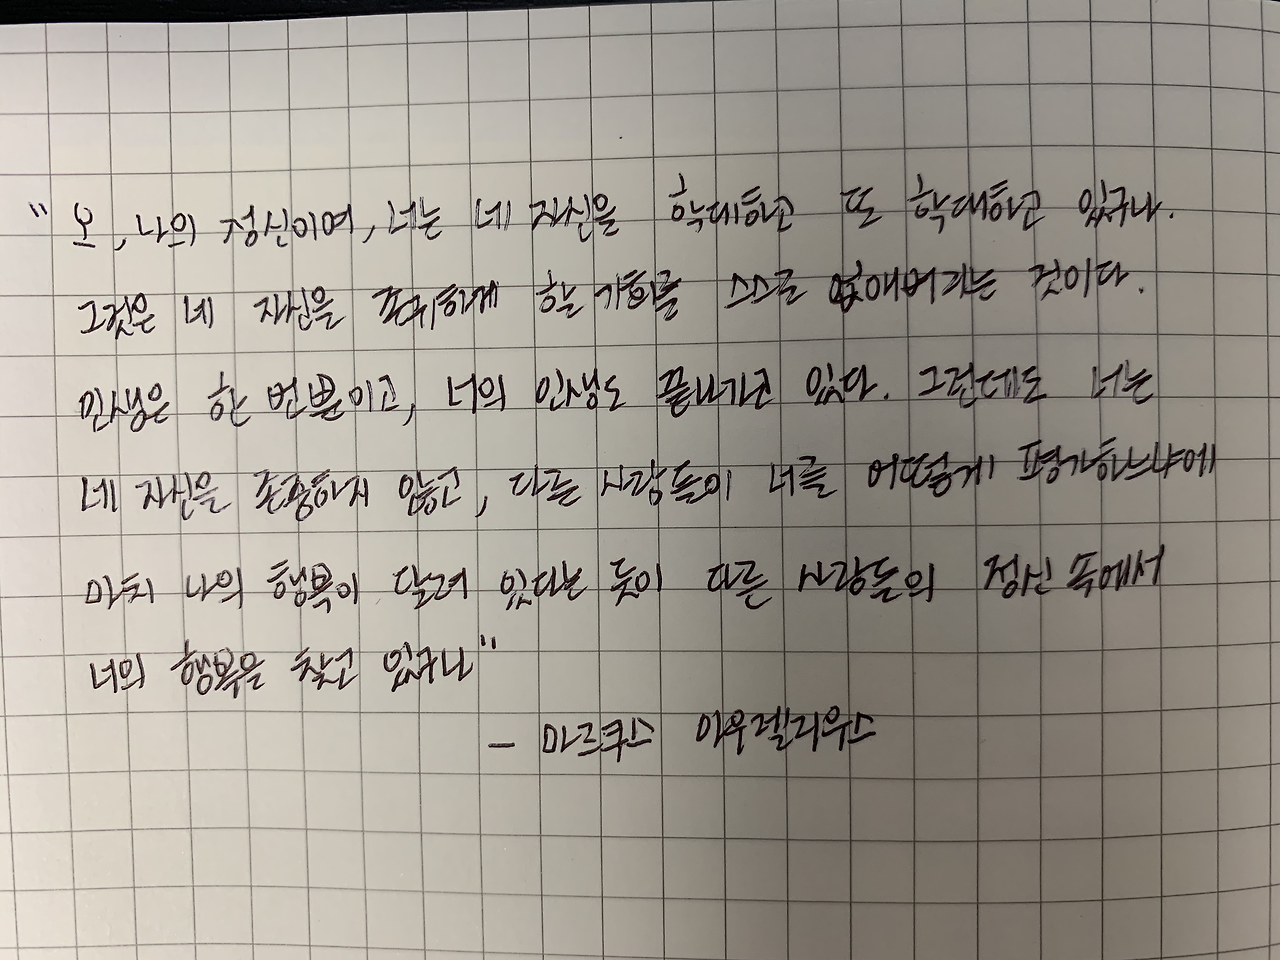 "오, 나의 정신이여, 너는 네 자신을 학대하고 또 학대하고 있구나.
그것은 네 자신을 존귀하게 할 기회를 스스로 없애버리는 것이다.
인생은 한 번뿐이고, 너의 인생도 끝나가고 있다. 그런데도 너는
네 자신을 존중하지 않고, 다른 사람들이 너를 어떻게 평가하느냐에
마치 나의 행복이 달려 있다는 듯이 다른 사람들의 정신 속에서
너의 행복을 찾고 있구나"
- 마르쿠스 아우렐리우스